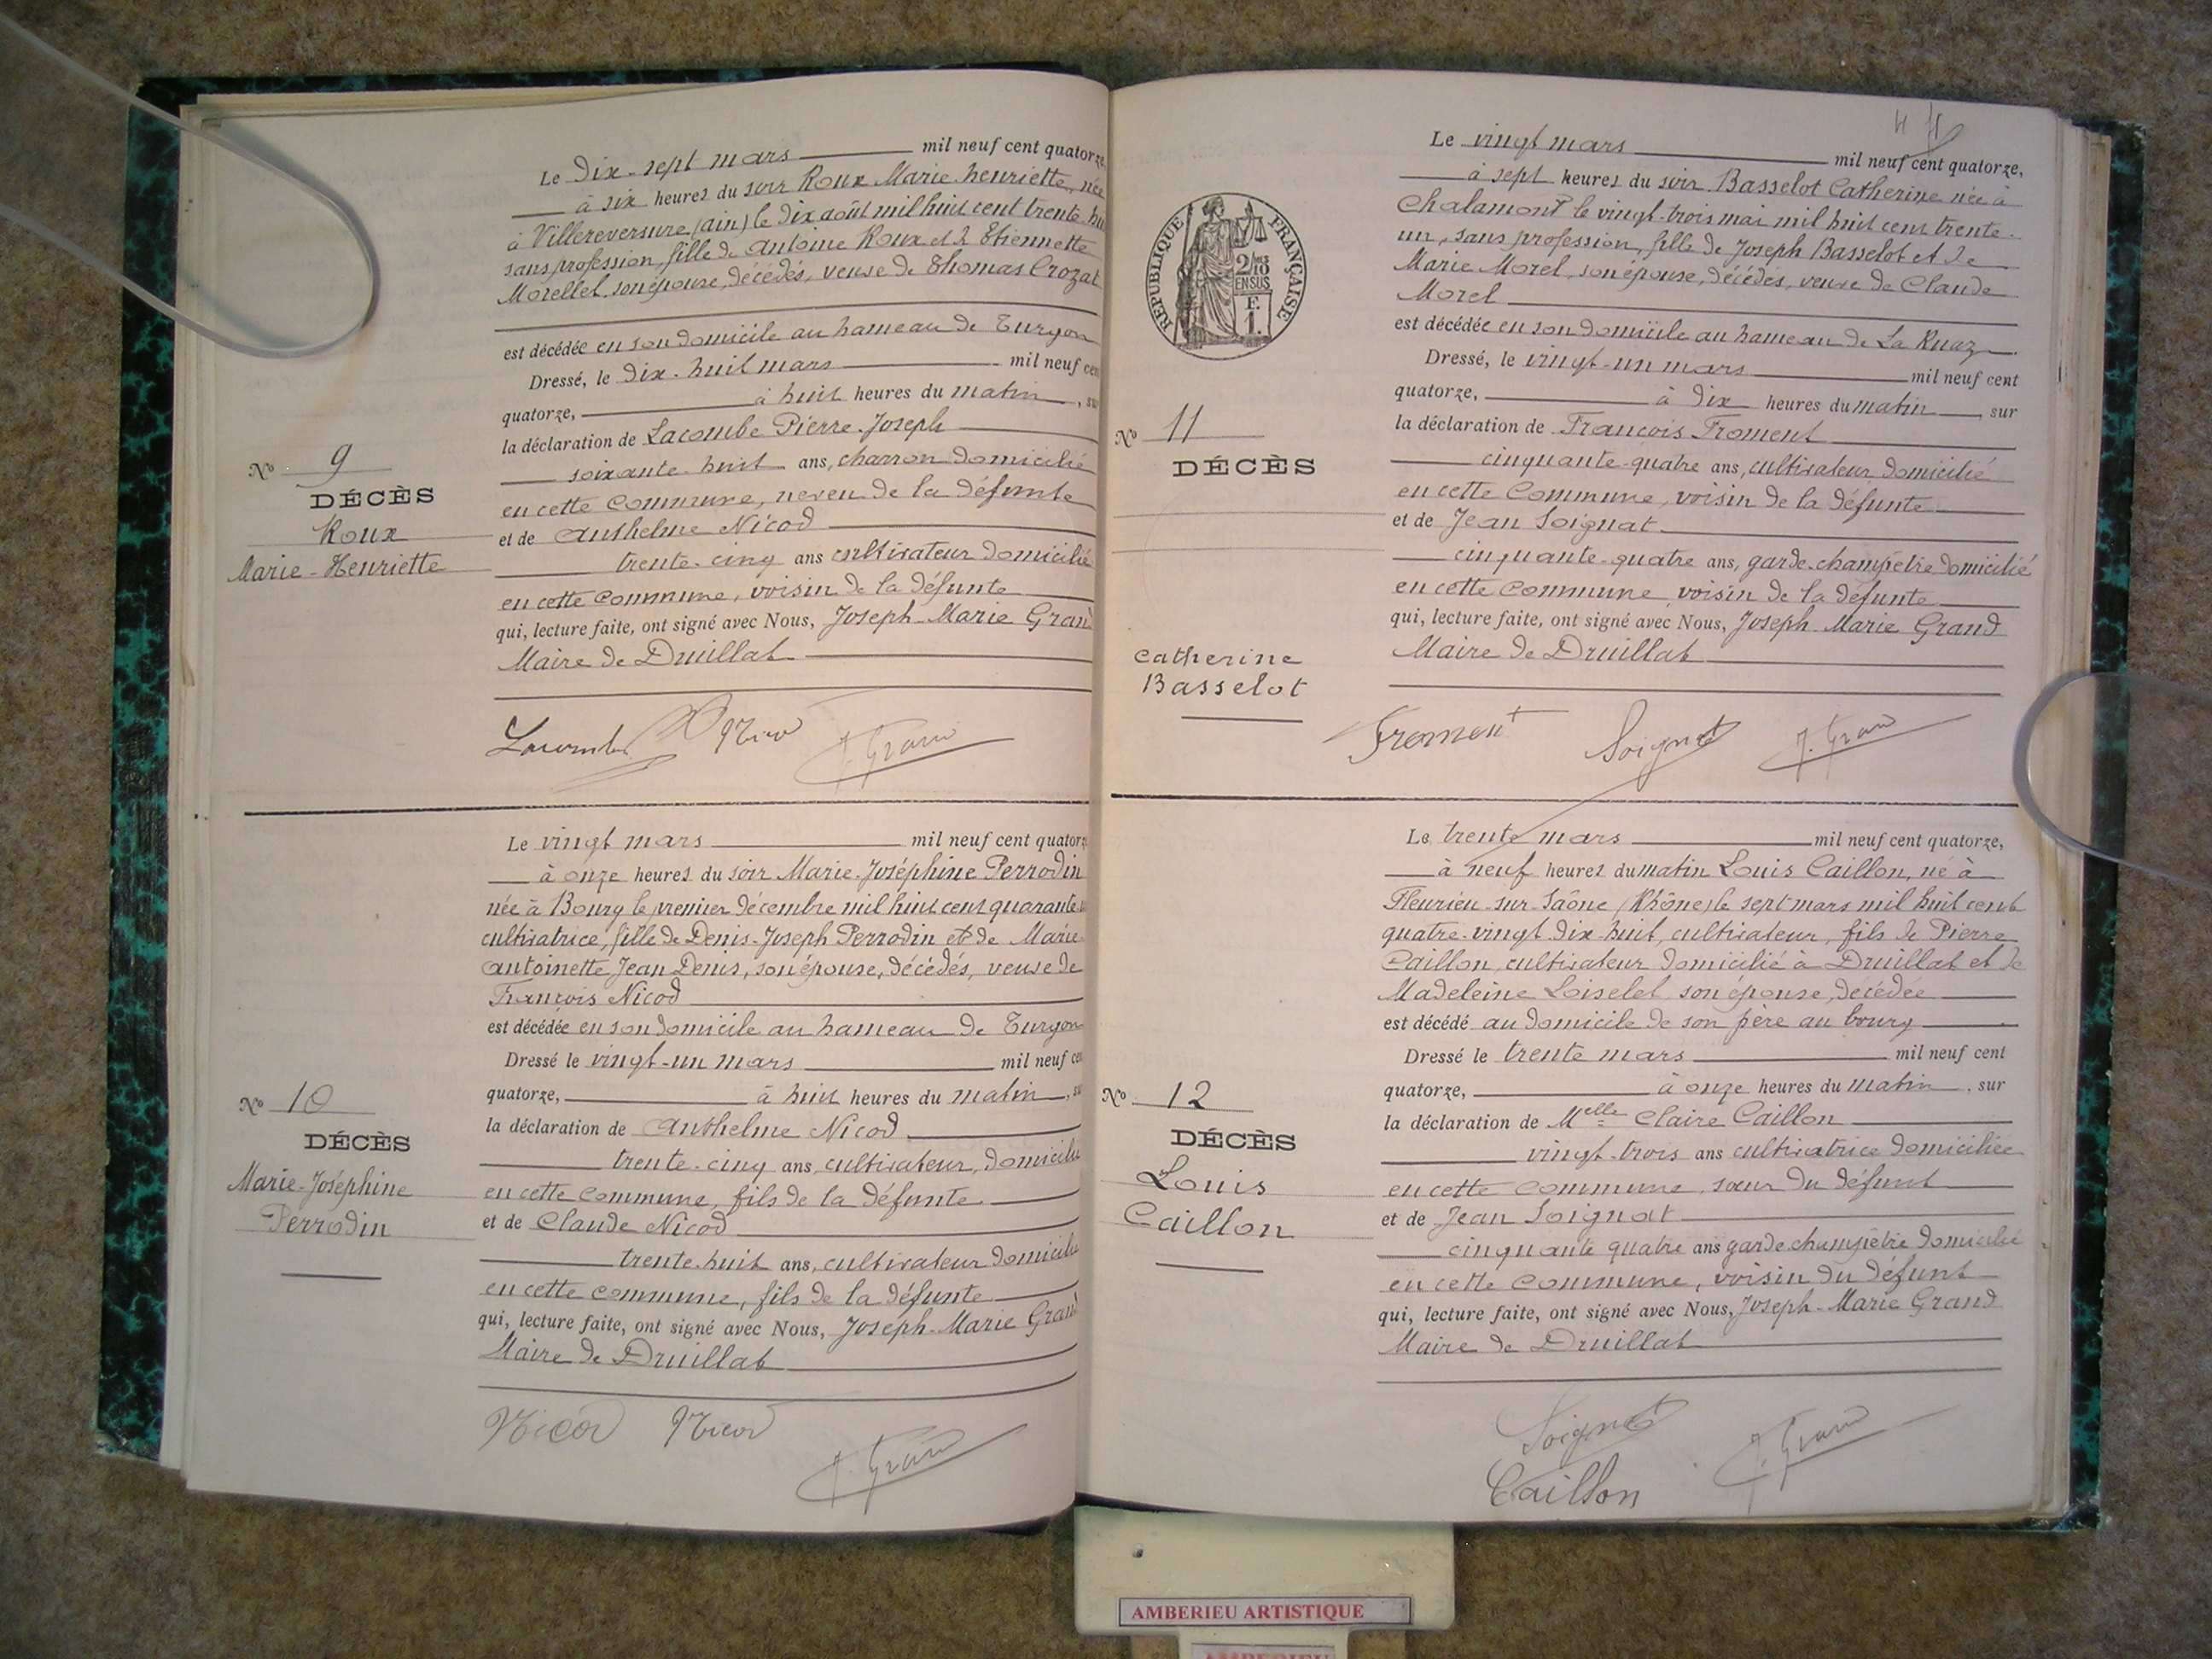 Le Dix-sept mars mil neuf cent quatorze,
à six heures du soir Roux Marie-henriette, née
à Villereversure (ain) le Dix août mil huit cent trente-hui
sans profession, fille de antoine Roux et d Etiennette
Morellet, son épouse, décédés, veuve de Thomas Crozat
est décédée en son domicile au hameau de Turgon
Dressé, le dix-huit mars mil neuf cen
quatorze, à huit heures du matin, su
la déclaration de Lacombe Pierre-Joseph
soixante-huit ans, charron domicilié
en cette commune, neveu de la défunte
et de Anthelme Nicod
trente-cinq ans cultivateur domicilié
en cette commune, voisin de la défunte
qui, lecture faite, ont signé avec Nous, Joseph-Marie Grand
Maire de Druillat
Nº 9
DÉCÈS
Roux
Marie-Henriette
Lacombe Nicod J. Grand
Le vingt mars mil neuf cent quatorz
à onze heures du soir Marie-Joséphine Perrodin
née à Bourg le premier décembre mil huit cent quarante
cultivatrice, fille de Denis-Joseph Perrodin et de Marie
antoinette Jean Denis, son épouse, décédés, veuve de
François Nicod
est décédée en son domicile au hameau de Turgon
Dressé le vingt-un mars mil neuf ce
quatorze, à huit heures du matin, su
la déclaration de Anthelme Nicod
trente-cinq ans, cultivateur, domicilié
en cette commune, fils de la défunte
et de Claude Nicod
trente-huit ans, cultivateur domicilié
en cette commune, fils de la défunte
qui, lecture faite, ont signé avec Nous, Joseph-Marie Grand
Maire de Druillat
Nº 10
DÉCÈS
Marie-Joséphine
Perrodin
Nicod Nicod J. Grand
Le vingt mars mil neuf cent quatorze,
à sept heures du soir Basselot Catherine née à
Chalamont le vingt-trois mai mil huit cent trente-
un, sans profession, fille de Joseph Basselot et de
Marie Morel, son épouse, décédés, veuve de Claude
Morel
est décédée en son domicile au hameau de La Ruaz
Dressé, le vingt-un mars mil neuf cent
quatorze, à dix heures du matin, sur
la déclaration de François Froment
cinquante-quatre ans, cultivateur domicilié
en cette commune, voisin de la défunte
et de Jean Soignat
cinquante-quatre ans, garde-champêtre domicilié
en cette commune, voisin de la défunte
qui, lecture faite, ont signé avec Nous, Joseph-Marie Grand
Maire de Druillat
RÉPUBLIQUE FRANÇAISE
2/10
EN SUS
F.
1.
Nº 11
DÉCÈS
Catherine
Basselot
Froment Soignat J. Grand
Le trente mars mil neuf cent quatorze,
à neuf heures du matin Louis Caillon, né à
Fleurieu-sur-Saône (Rhône) le sept mars mil huit cent
quatre-vingt dix-huit, cultivateur, fils de Pierre
Caillon, cultivateur domicilié à Druillat et de
Madeleine Loiselet son épouse, décédée
est décédé au domicile de son père au bourg
Dressé le trente mars mil neuf cent
quatorze, à onze heures du matin, sur
la déclaration de Melle Claire Caillon
vingt-trois ans cultivatrice domiciliée
en cette commune, sœur du défunt
et de Jean Soignat
cinquante quatre ans garde-champêtre domicilié
en cette commune, voisin du défunt
qui, lecture faite, ont signé avec Nous, Joseph-Marie Grand
Maire de Druillat
Nº 12
DÉCÈS
Louis
Caillon
Soignat J. Grand
Caillon
AMBERIEU ARTISTIQUE
AMBERIEU